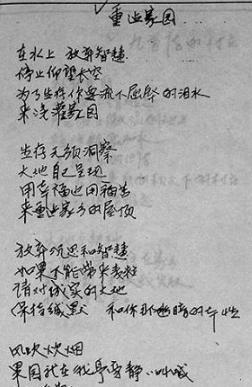 重建家园
在水上 放弃智慧
停止仰望长空
为了生存你要流下屈辱的泪水
来浇灌家园
生存无须洞察
大地自己呈现
用幸福也用痛苦
来重建家乡的屋顶
放弃沉思和智慧
如果不能带来麦粒
请对诚实的大地
保持缄默 和你那幽暗的本性
风吹炊烟
果园就在我身旁静静叫喊